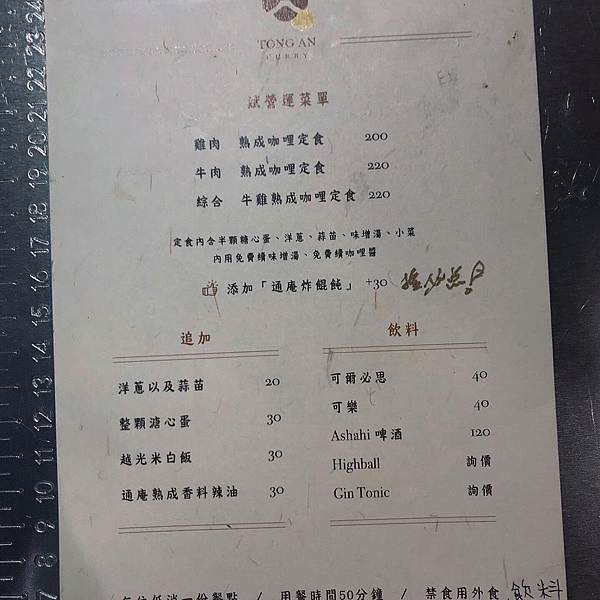 TONG AN
CURRY
試營運菜單
雞肉 熟成咖哩定食 200
牛肉 熟成咖哩定食 220
綜合 牛雞熟成咖哩定食 220
定食內含半顆糖心蛋、洋蔥、蒜苗、味增湯、小菜
內用免費續味增湯、免費續咖哩醬
添加「通庵炸餛飩」 +30
追加
洋蔥以及蒜苗 20
整顆溏心蛋 30
越光米白飯 30
通庵熟成香料辣油 30
飲料
可爾必思 40
可樂 40
Ashahi 啤酒 120
Highball 詢價
Gin Tonic 詢價
每位低消一份餐點 / 用餐時間50分鐘 / 禁食用外食 飲料